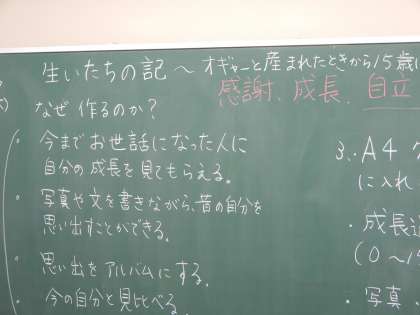 生いたちの記 ～ オギャーと産まれたときから15歳
感謝、成長、自立
なぜ 作るのか？
・今までお世話になった人に
自分の成長を見てもらえる。
・写真や文を書きながら、昔の自分を
思い出すことができる。
・思い出をアルバムにする。
・今の自分と見比べる。
3. A4
に入れ
・成長
(0～15
・写真